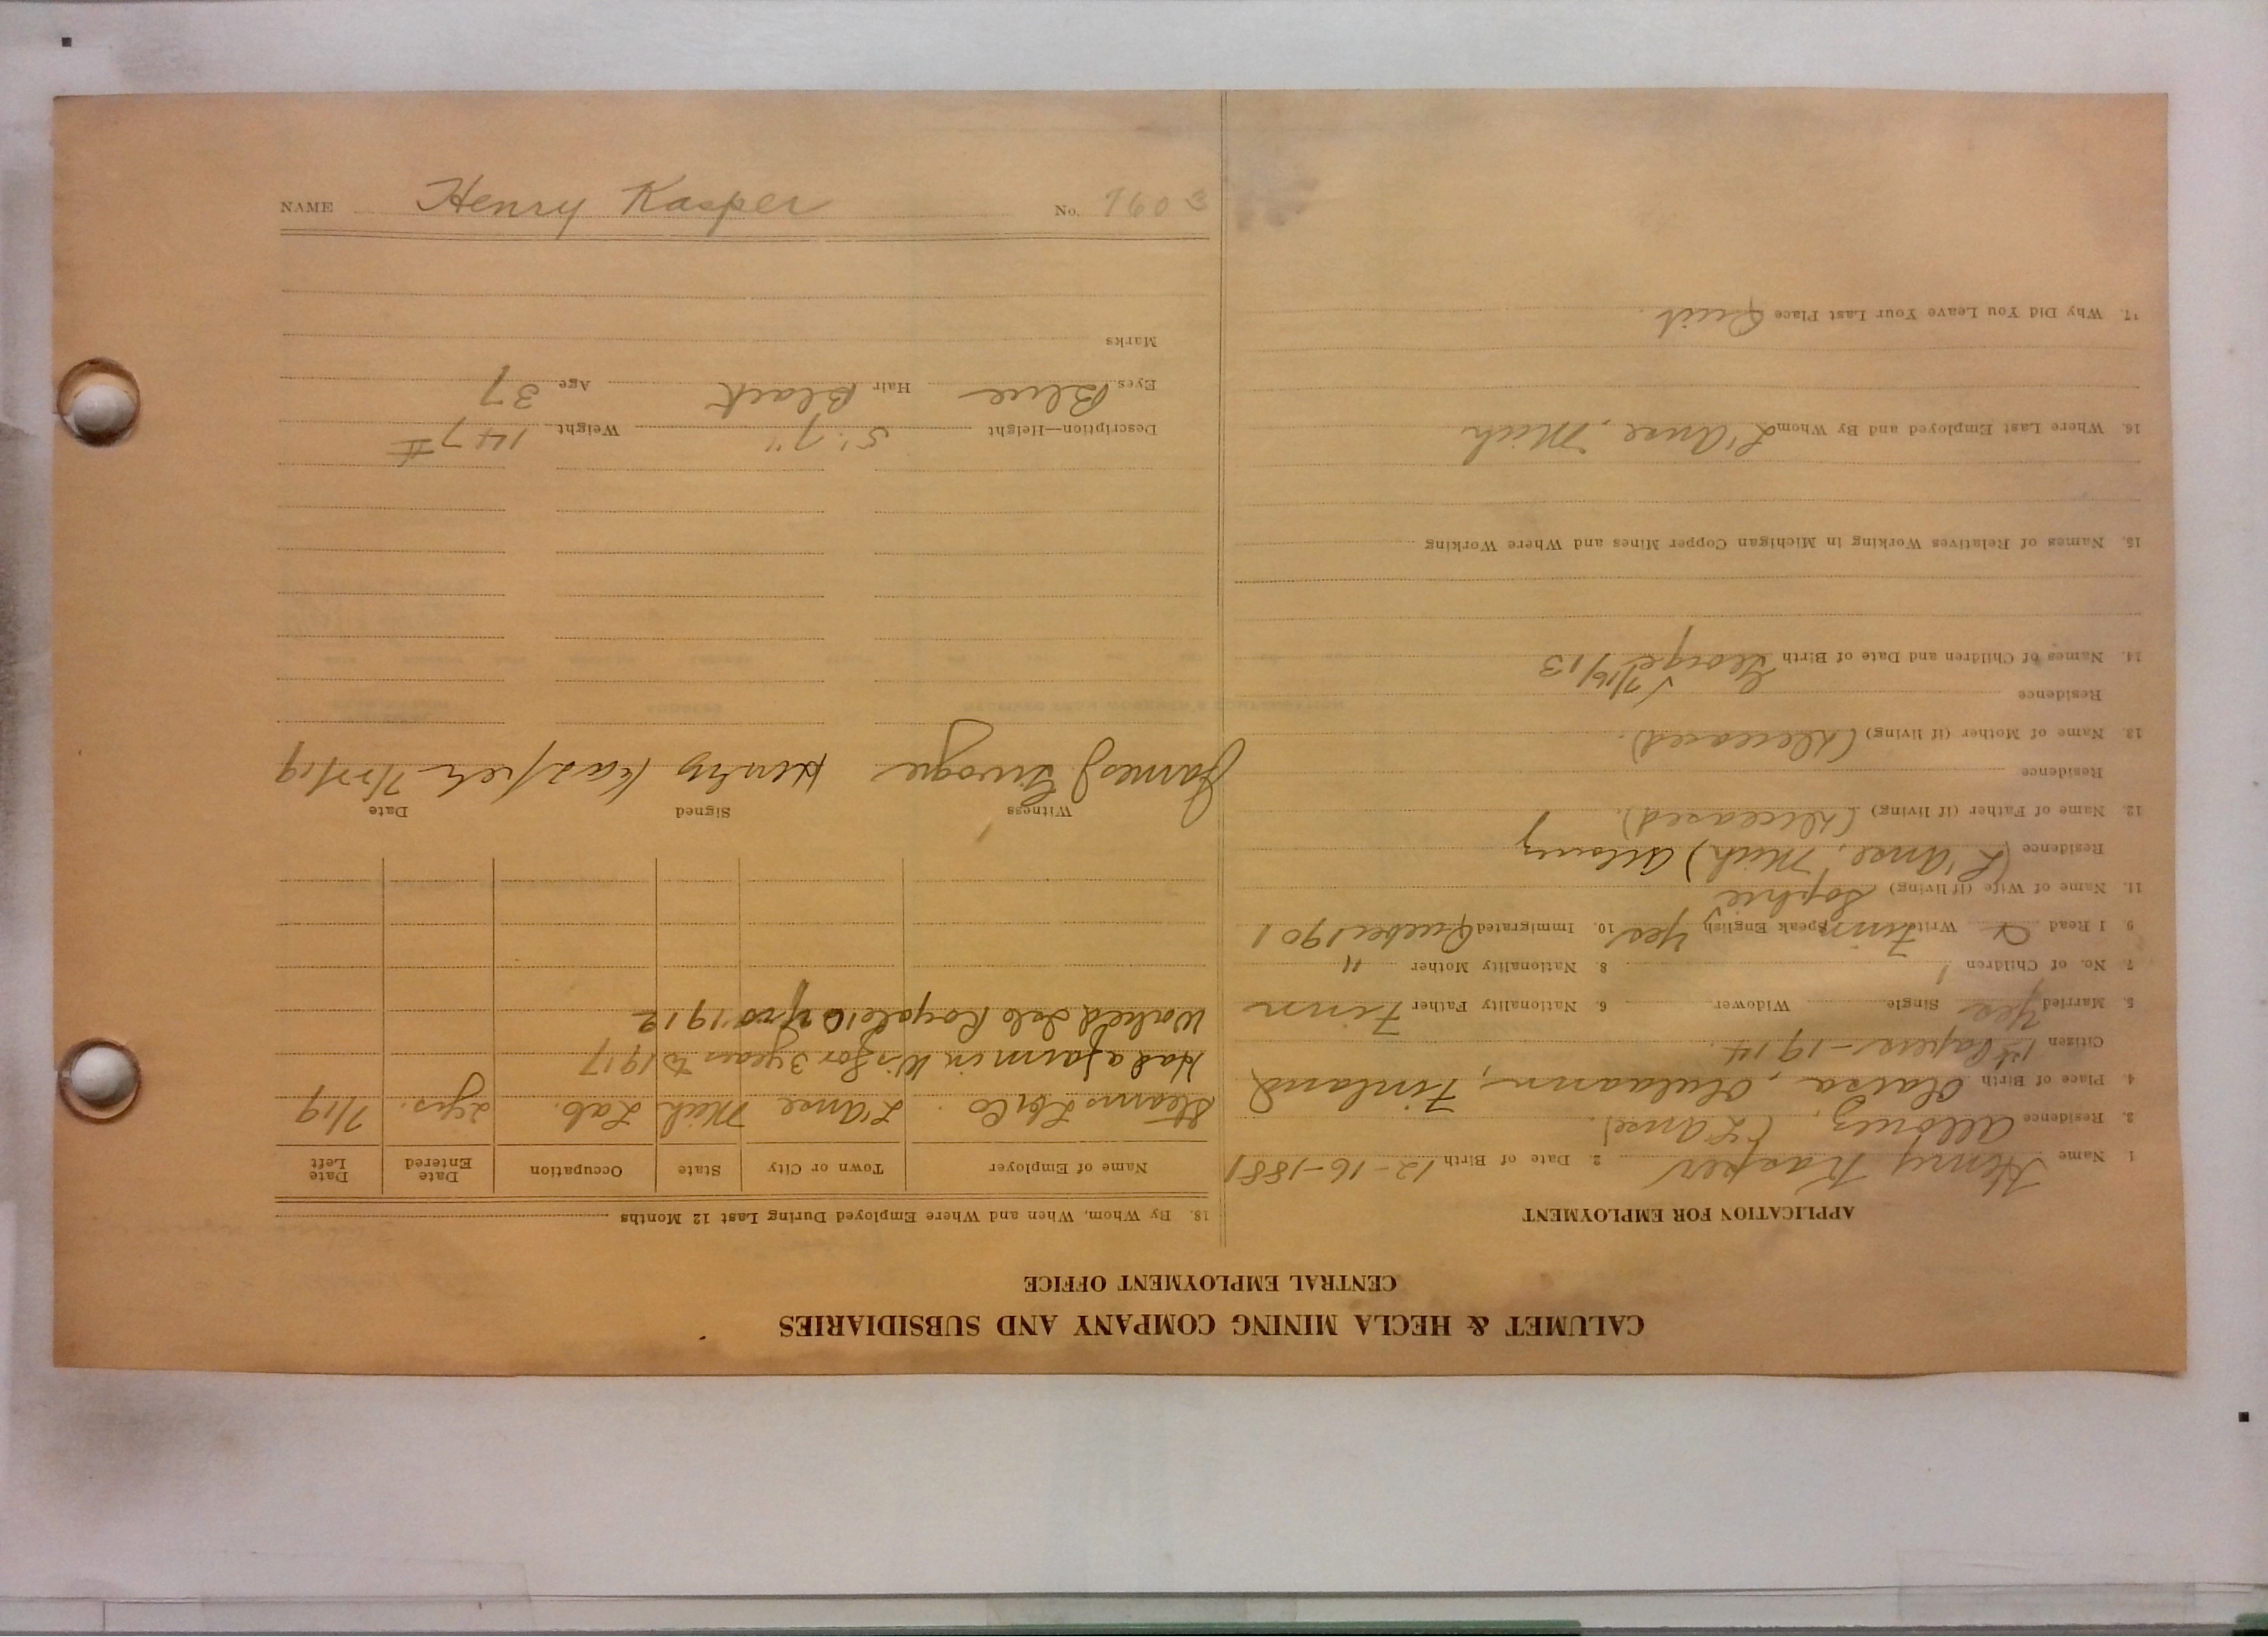 CALUMET & HECLA MINING COMPANY AND SUBSIDIARIES
CENTRAL EMPLOYMENT OFFICE
APPLICATION FOR EMPLOYMENT
1. Name Henry Kasper 2. Date of Birth 12-16-1881
3. Residence Allouez, (L'Anse).
4. Place of Birth Finland
Citizen 1st Papers - 1914.
5. Married Yes Single Widower 6. Nationality Father Finn
7. No. of Children 1 8. Nationality Mother "
9. I Read Write Finn Speak English Yes 10. Immigrated Quebec 1901
11. Name of Wife (if living) Sophie
Residence (L'Anse, Mich) Allouez
12. Name of Father (if living) (Deceased).
Residence
13. Name of Mother (if living) (Deceased).
Residence
14. Names of Children and Date of Birth George 7/16/13
15. Names of Relatives Working in Michigan Copper Mines and Where Working
16. Where Last Employed and By Whom L'Anse, Mich
17. Why Did You Leave Your Last Place Quit.
18. By Whom, When and Where Employed During Last 12 Months
Name of Employer Town or City State Occupation Date Entered Date Left
Stearns Lbr Co. L'Anse Mich Lab. 2 yrs. 7/19
Had a farm in Wis for 3 years to 1917
Worked Isle Royale 10 yrs 1912
Witness Signed Date
James J. Henry Kasper 7/27/19
Description—Height 5' 7" Weight 147 #
Eyes Blue Hair Black Age 37
Marks
NAME Henry Kasper No. 7603